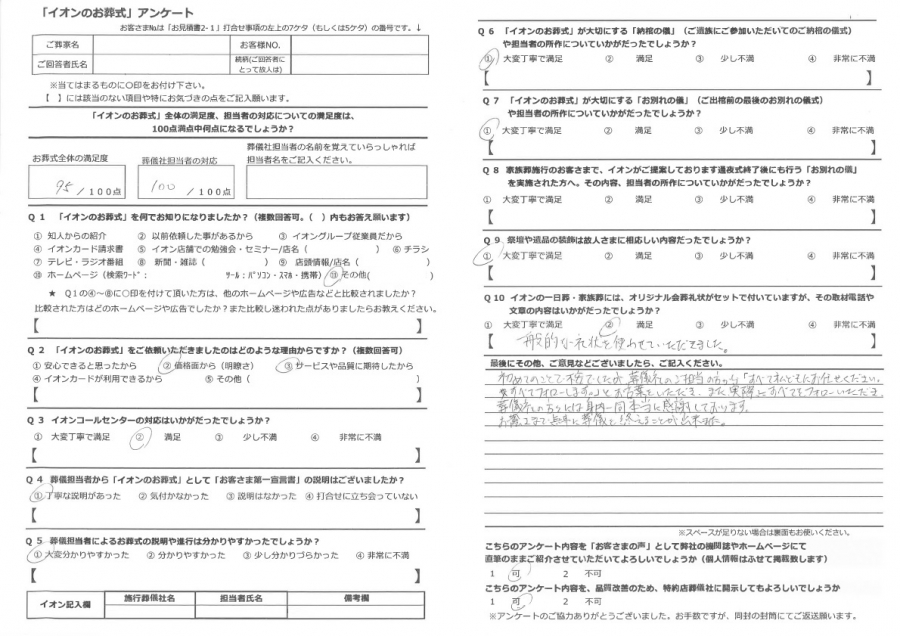 「イオンのお葬式」アンケート
お客さま№は「お見積書2-1」打合せ事項の左上の7ケタ（もしくは5ケタ）の番号です。↓
ご葬家名
お客様NO.
ご回答者氏名
続柄(ご回答者にとって故人は)
※当てはまるものに○印をお付け下さい。
【　】には該当のない項目や特にお気づきの点をご記入願います。
「イオンのお葬式」全体の満足度、担当者の対応についての満足度は、
100点満点中何点になるでしょうか？
お葬式全体の満足度
葬儀社担当者の対応
葬儀社担当者の名前を覚えていらっしゃれば
担当者名をご記入ください。
95 / 100点
100 / 100点
Q 1　「イオンのお葬式」を何でお知りになりましたか？（複数回答可。（　）内もお答え願います）
① 知人からの紹介　② 以前依頼した事があるから　③ イオングループ従業員だから
④ イオンカード請求書　⑤ イオン店舗での勉強会・セミナー/店名（　　　）　⑥ チラシ
⑦ テレビ・ラジオ番組　⑧ 新聞・雑誌（　　　）　⑨ 店頭情報/店名（　　　）
⑩ ホームページ（検索ﾜｰﾄﾞ：　　　ﾂｰﾙ：ﾊﾟｿｺﾝ・ｽﾏﾎ・携帯）　⑪ その他(　　　)
★ Q１の④～⑧に○印を付けて頂いた方は、他のホームページや広告などと比較されましたか？
比較された方はどのホームページや広告でしたか？また比較し迷われた点がありましたらお教えください。
【　】
Q 2　「イオンのお葬式」をご依頼いただきましたのはどのような理由からですか？（複数回答可）
① 安心できると思ったから　② 価格面から（明瞭さ）　③ サービスや品質に期待したから
④ イオンカードが利用できるから　⑤ その他（　　　）
【　】
Q 3　イオンコールセンターの対応はいかがだったでしょうか？
① 大変丁寧で満足　② 満足　③ 少し不満　④ 非常に不満
【　】
Q 4　葬儀担当者から「イオンのお葬式」として「お客さま第一宣言書」の説明はございましたか？
① 丁寧な説明があった　② 気付かなかった　③ 説明はなかった　④ 打合せに立ち会っていない
【　】
Q 5　葬儀担当者によるお葬式の説明や進行は分かりやすかったでしょうか？
① 大変分かりやすかった　② 分かりやすかった　③ 少し分かりづらかった　④ 非常に不満
【　】
イオン記入欄
施行葬儀社名
担当者氏名
備考欄
Q 6　「イオンのお葬式」が大切にする「納棺の儀」（ご遺族にご参加いただいてのご納棺の儀式）
や担当者の所作についていかがだったでしょうか？
① 大変丁寧で満足　② 満足　③ 少し不満　④ 非常に不満
【　】
Q 7　「イオンのお葬式」が大切にする「お別れの儀」（ご出棺前の最後のお別れの儀式）
や担当者の所作についていかがだったでしょうか？
① 大変丁寧で満足　② 満足　③ 少し不満　④ 非常に不満
【　】
Q 8　家族葬施行のお客さまで、イオンがご提案しております通夜式終了後にも行う「お別れの儀」
を実施された方へ。その内容、担当者の所作についていかがだったでしょうか？
① 大変丁寧で満足　② 満足　③ 少し不満　④ 非常に不満
【　】
Q 9　祭壇や遺品の装飾は故人さまに相応しい内容だったでしょうか？
① 大変丁寧で満足　② 満足　③ 少し不満　④ 非常に不満
【　】
Q 10　イオンの一日葬・家族葬には、オリジナル会葬礼状がセットで付いていますが、その取材電話や
文章の内容はいかがだったでしょうか？
① 大変丁寧で満足　② 満足　③ 少し不満　④ 非常に不満
【 一般的な礼状を使わせていただきました。 】
最後にその他、ご意見などございましたら、ご記入ください。
初めてのことで不安でしたが 葬儀社のご担当の方から「すべて私どもにお任せください。
すべてフォローします。」とお言葉をいただき、また実際にすべてをフォローいただき
葬儀社の方々には身内一同本当に感謝しております。
お蔭さまで無事に葬儀を終えることが出来ました。
※スペースが足りない場合は裏面もお使いください。
こちらのアンケート内容を「お客さまの声」として弊社の機関誌やホームページにて
直筆のままご紹介させていただいてよろしいでしょうか（個人情報はふせて掲載致します）
1　可　　2　不可
こちらのアンケート内容を、品質改善のため、特約店葬儀社に開示してもよろしいでしょうか
1　可　　2　不可
※アンケートのご協力ありがとうございました。お手数ですが、同封の封筒にてご返送願います。